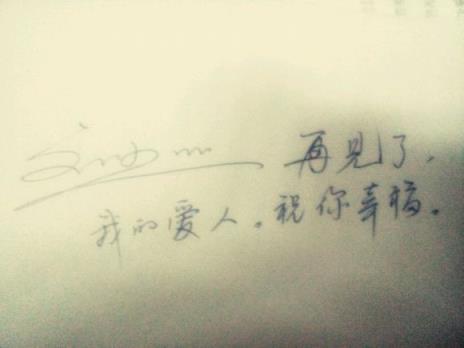 再见了,
我的爱人。祝你幸福。